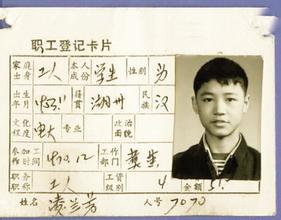 职工登记卡片
家庭出身 工人 本人成份 学生 性别 男
出生年月 1953.11 籍贯 湖州 民族 汉
文化程度 电大 专业 政治面貌
参加工作时间 1970.12 工作部门
职务职称 工人 工资级别 4 金额
姓名 凌兰芳 人号 7070